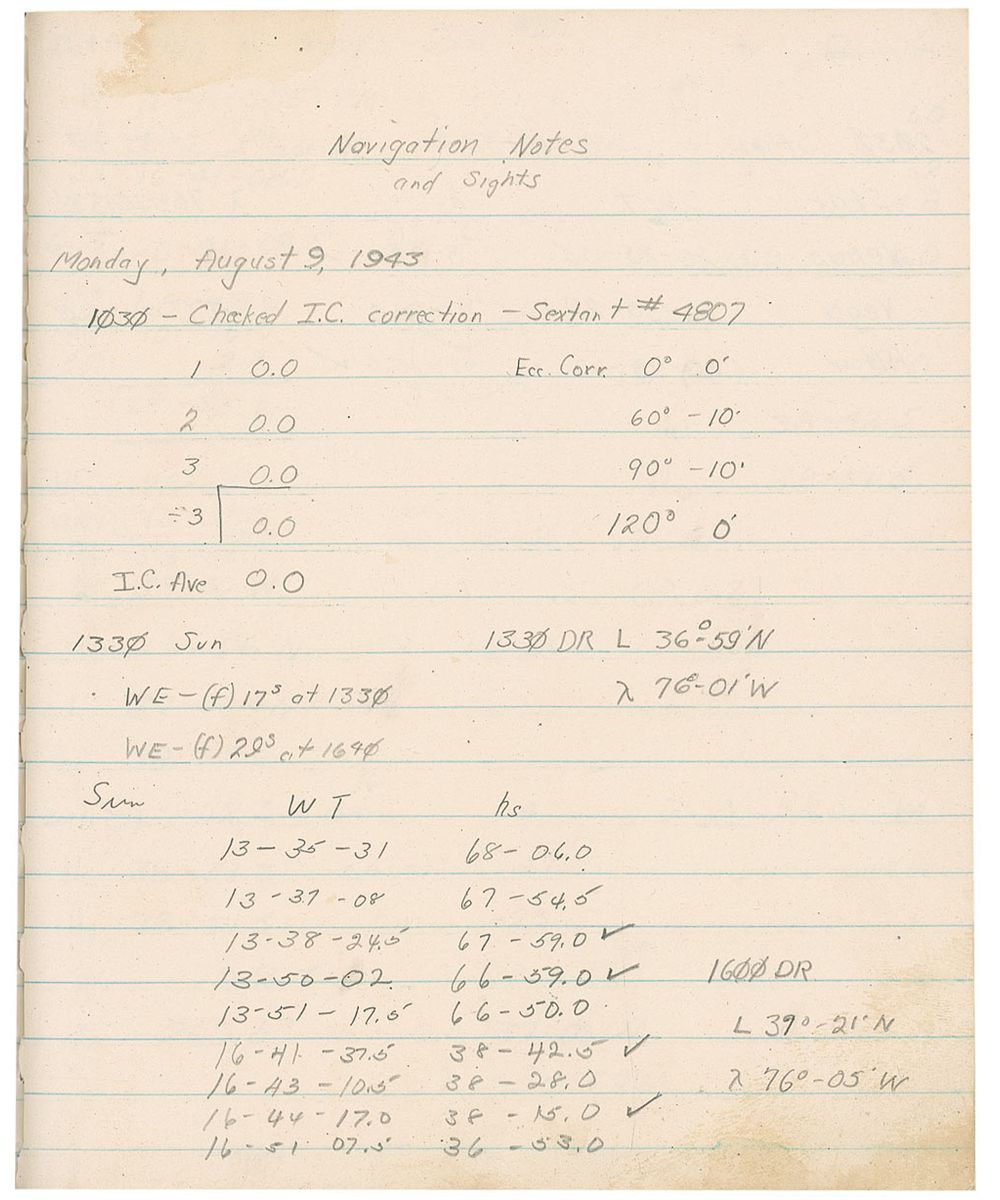 Navigation Notes
and Sights
Monday, August 9, 1943
1030 - Checked I.C. correction - Sextant # 4807
1 0.0 Ecc. Corr. 0° 0'
2 0.0 60° -10'
3 0.0 90° -10'
÷3 0.0 120° 0'
I.C. Ave 0.0
1330 Sun 1330 DR L 36°-59'N
WE-(f) 17s at 1330 λ 76°-01'W
WE-(f) at 1640
Sun WT hs
13-35-31 68-06.0
13-37-08 67-54.5
13-38-24.5 67-59.0 ✓
13-50-02 66-59.0 ✓ 1600 DR
13-51-17.5 66-50.0
L 39°-21'N
16-41-37.5 38-42.5 ✓
16-43-10.5 38-28.0 λ 76°-05'W
16-44-17.0 38-15.0 ✓
16-51 07.5 36-53.0